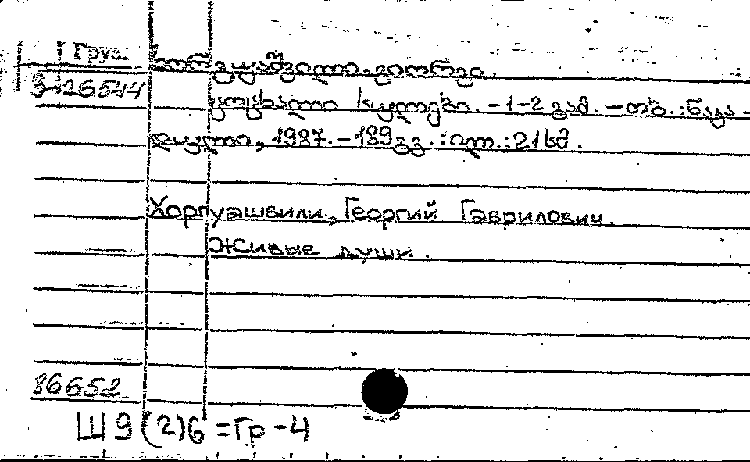 Груз.
ხორგუაშვილი, გიორგი.
3-126544
ცოცხალი სულები. -1-2 გამ. -თბ. : ნაკა-
დული, 1987. -189გვ. : ილ. ; 21სმ.
Хоргуашвили, Георгий Гаврилович.
Живые души.
86652
Ш9(2)6=Гр-4